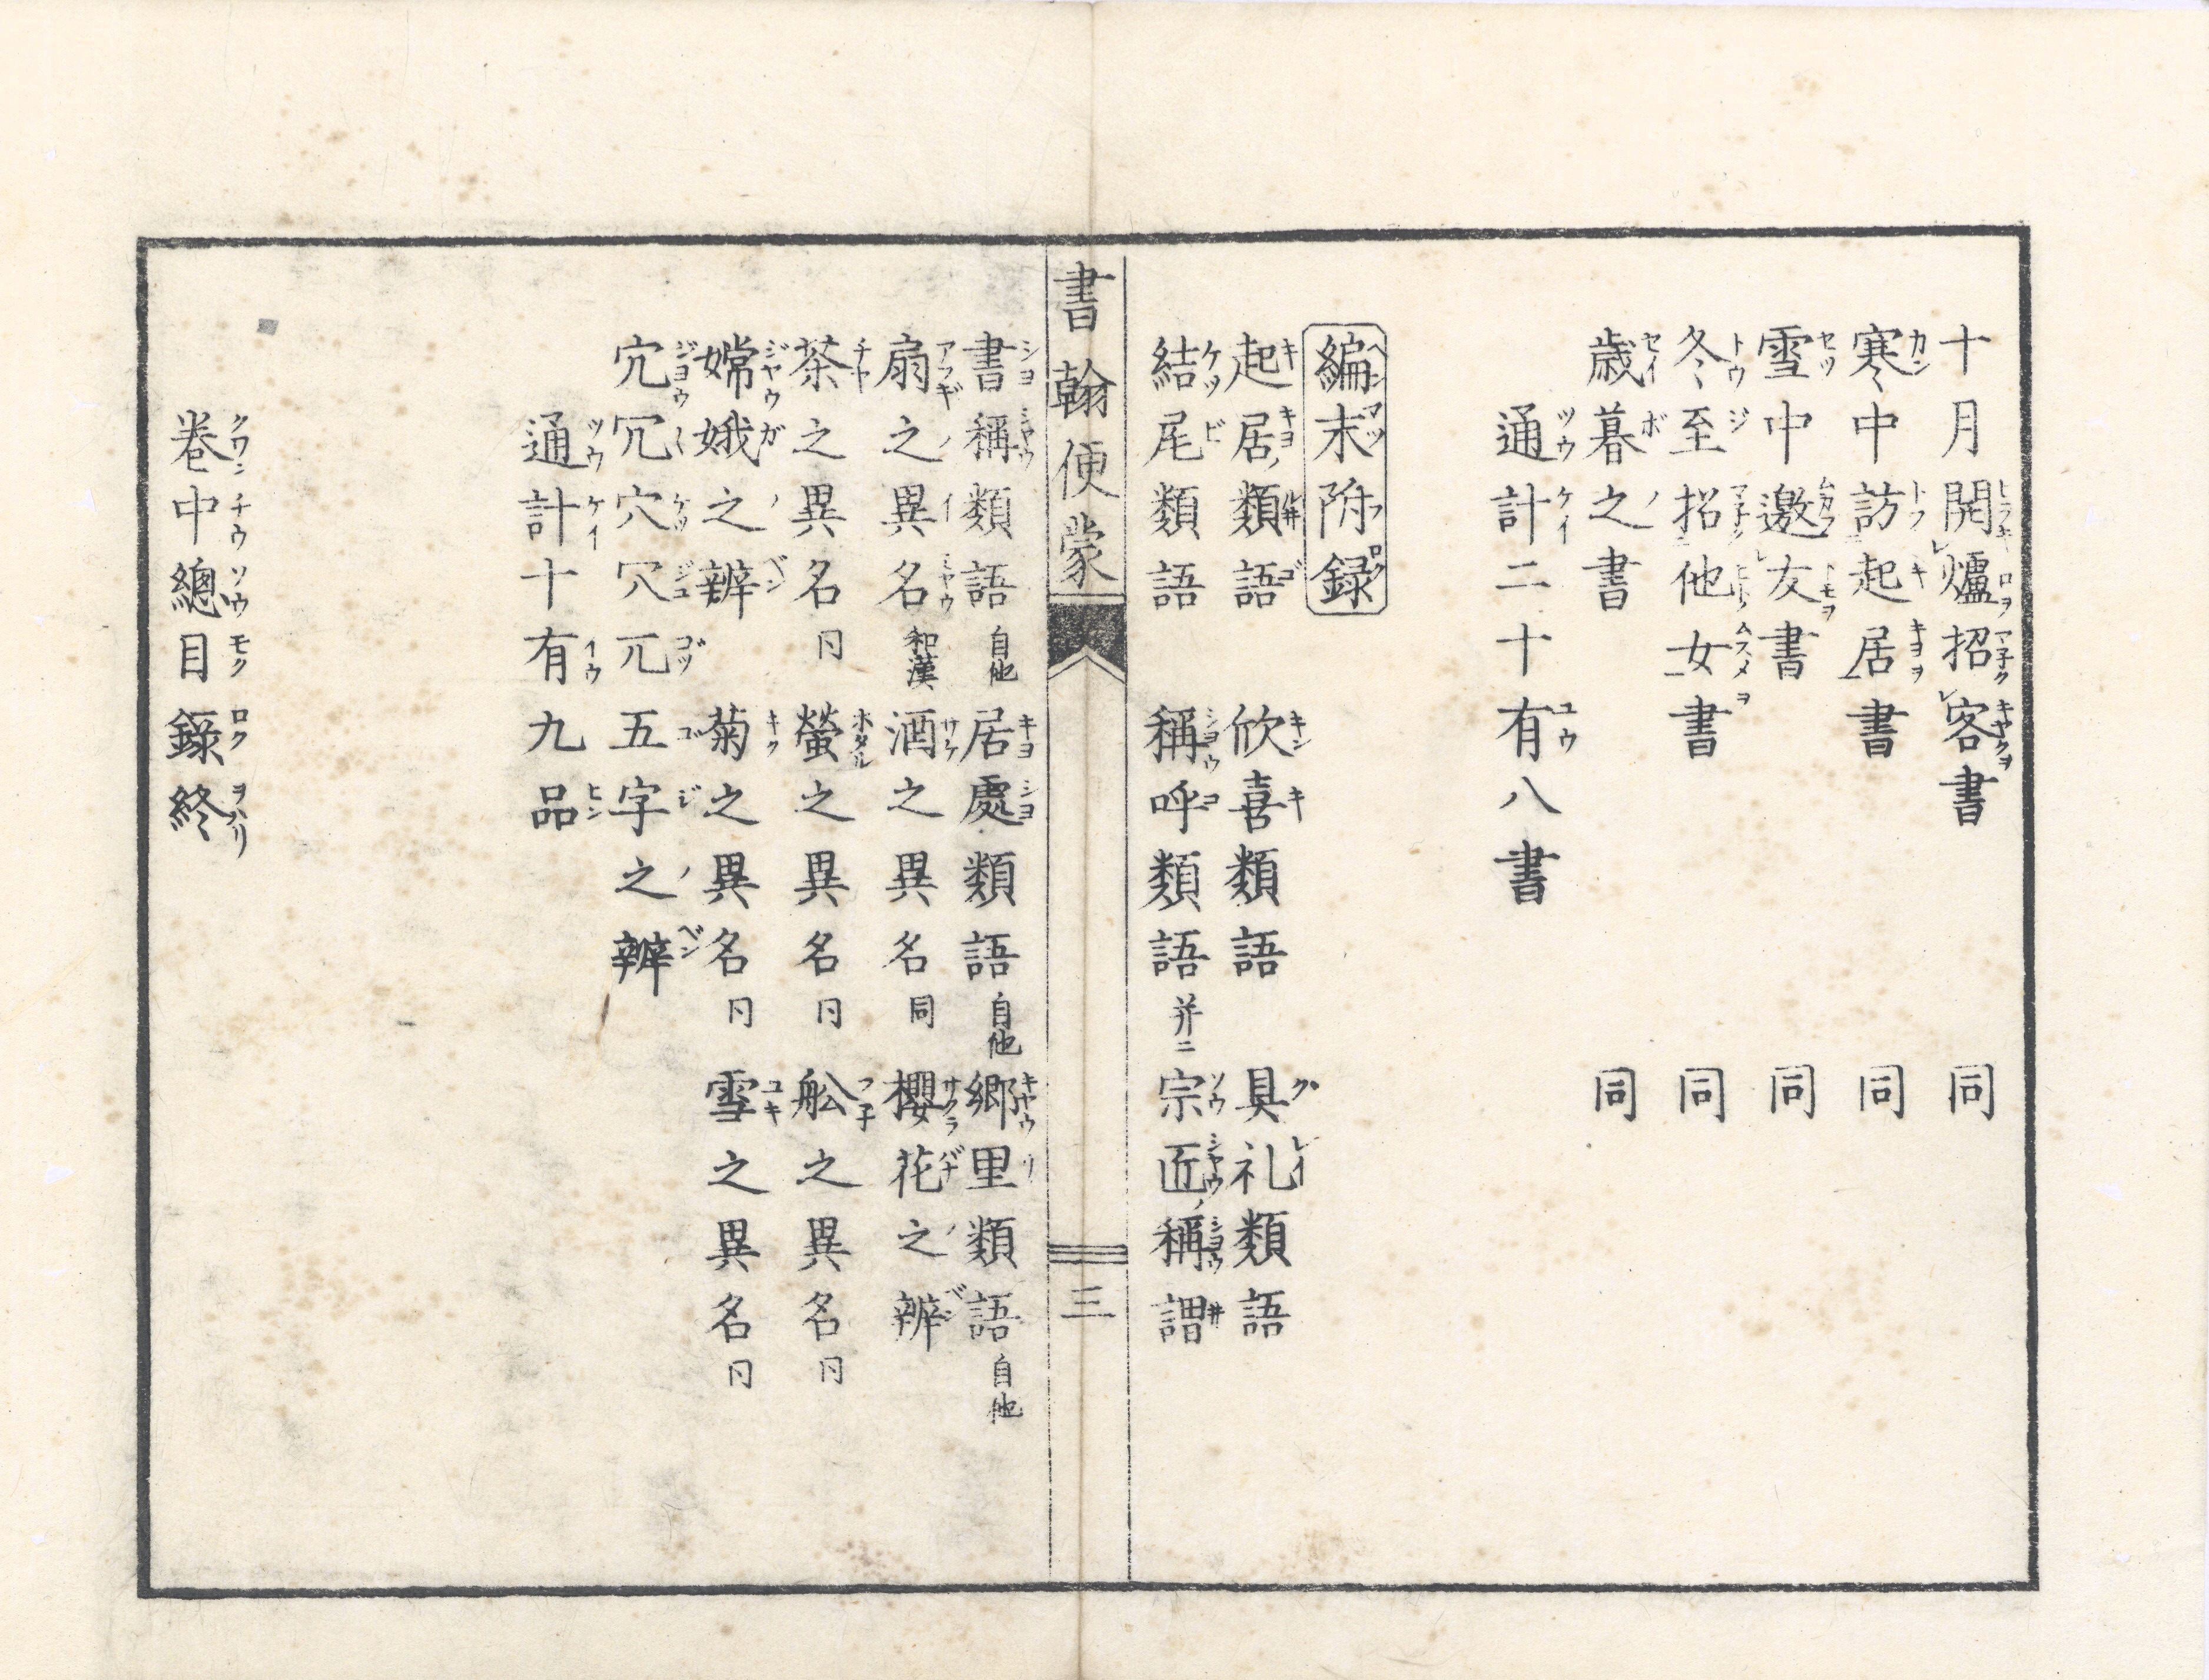 十月開爐招客書 同
寒中訪起居書 同
雪中邀友書 同
冬至招他女書 同
歳暮之書 同
通計二十有八書
編末附録
起居類語 欣喜類語 具礼類語
結尾類語 稱呼類語 并ニ 宗匠稱謂
書翰便蒙 三
書稱類語 自他 居處類語 自他 郷里類語 自他
扇之異名 和漢 酒之異名 同 櫻花之辨
茶之異名 仝 螢之異名 仝 舩之異名 仝
嫦娥之辨 菊之異名 仝 雪之異名 仝
宂冗穴冗兀五字之辨
通計十有九品
巻中總目録終